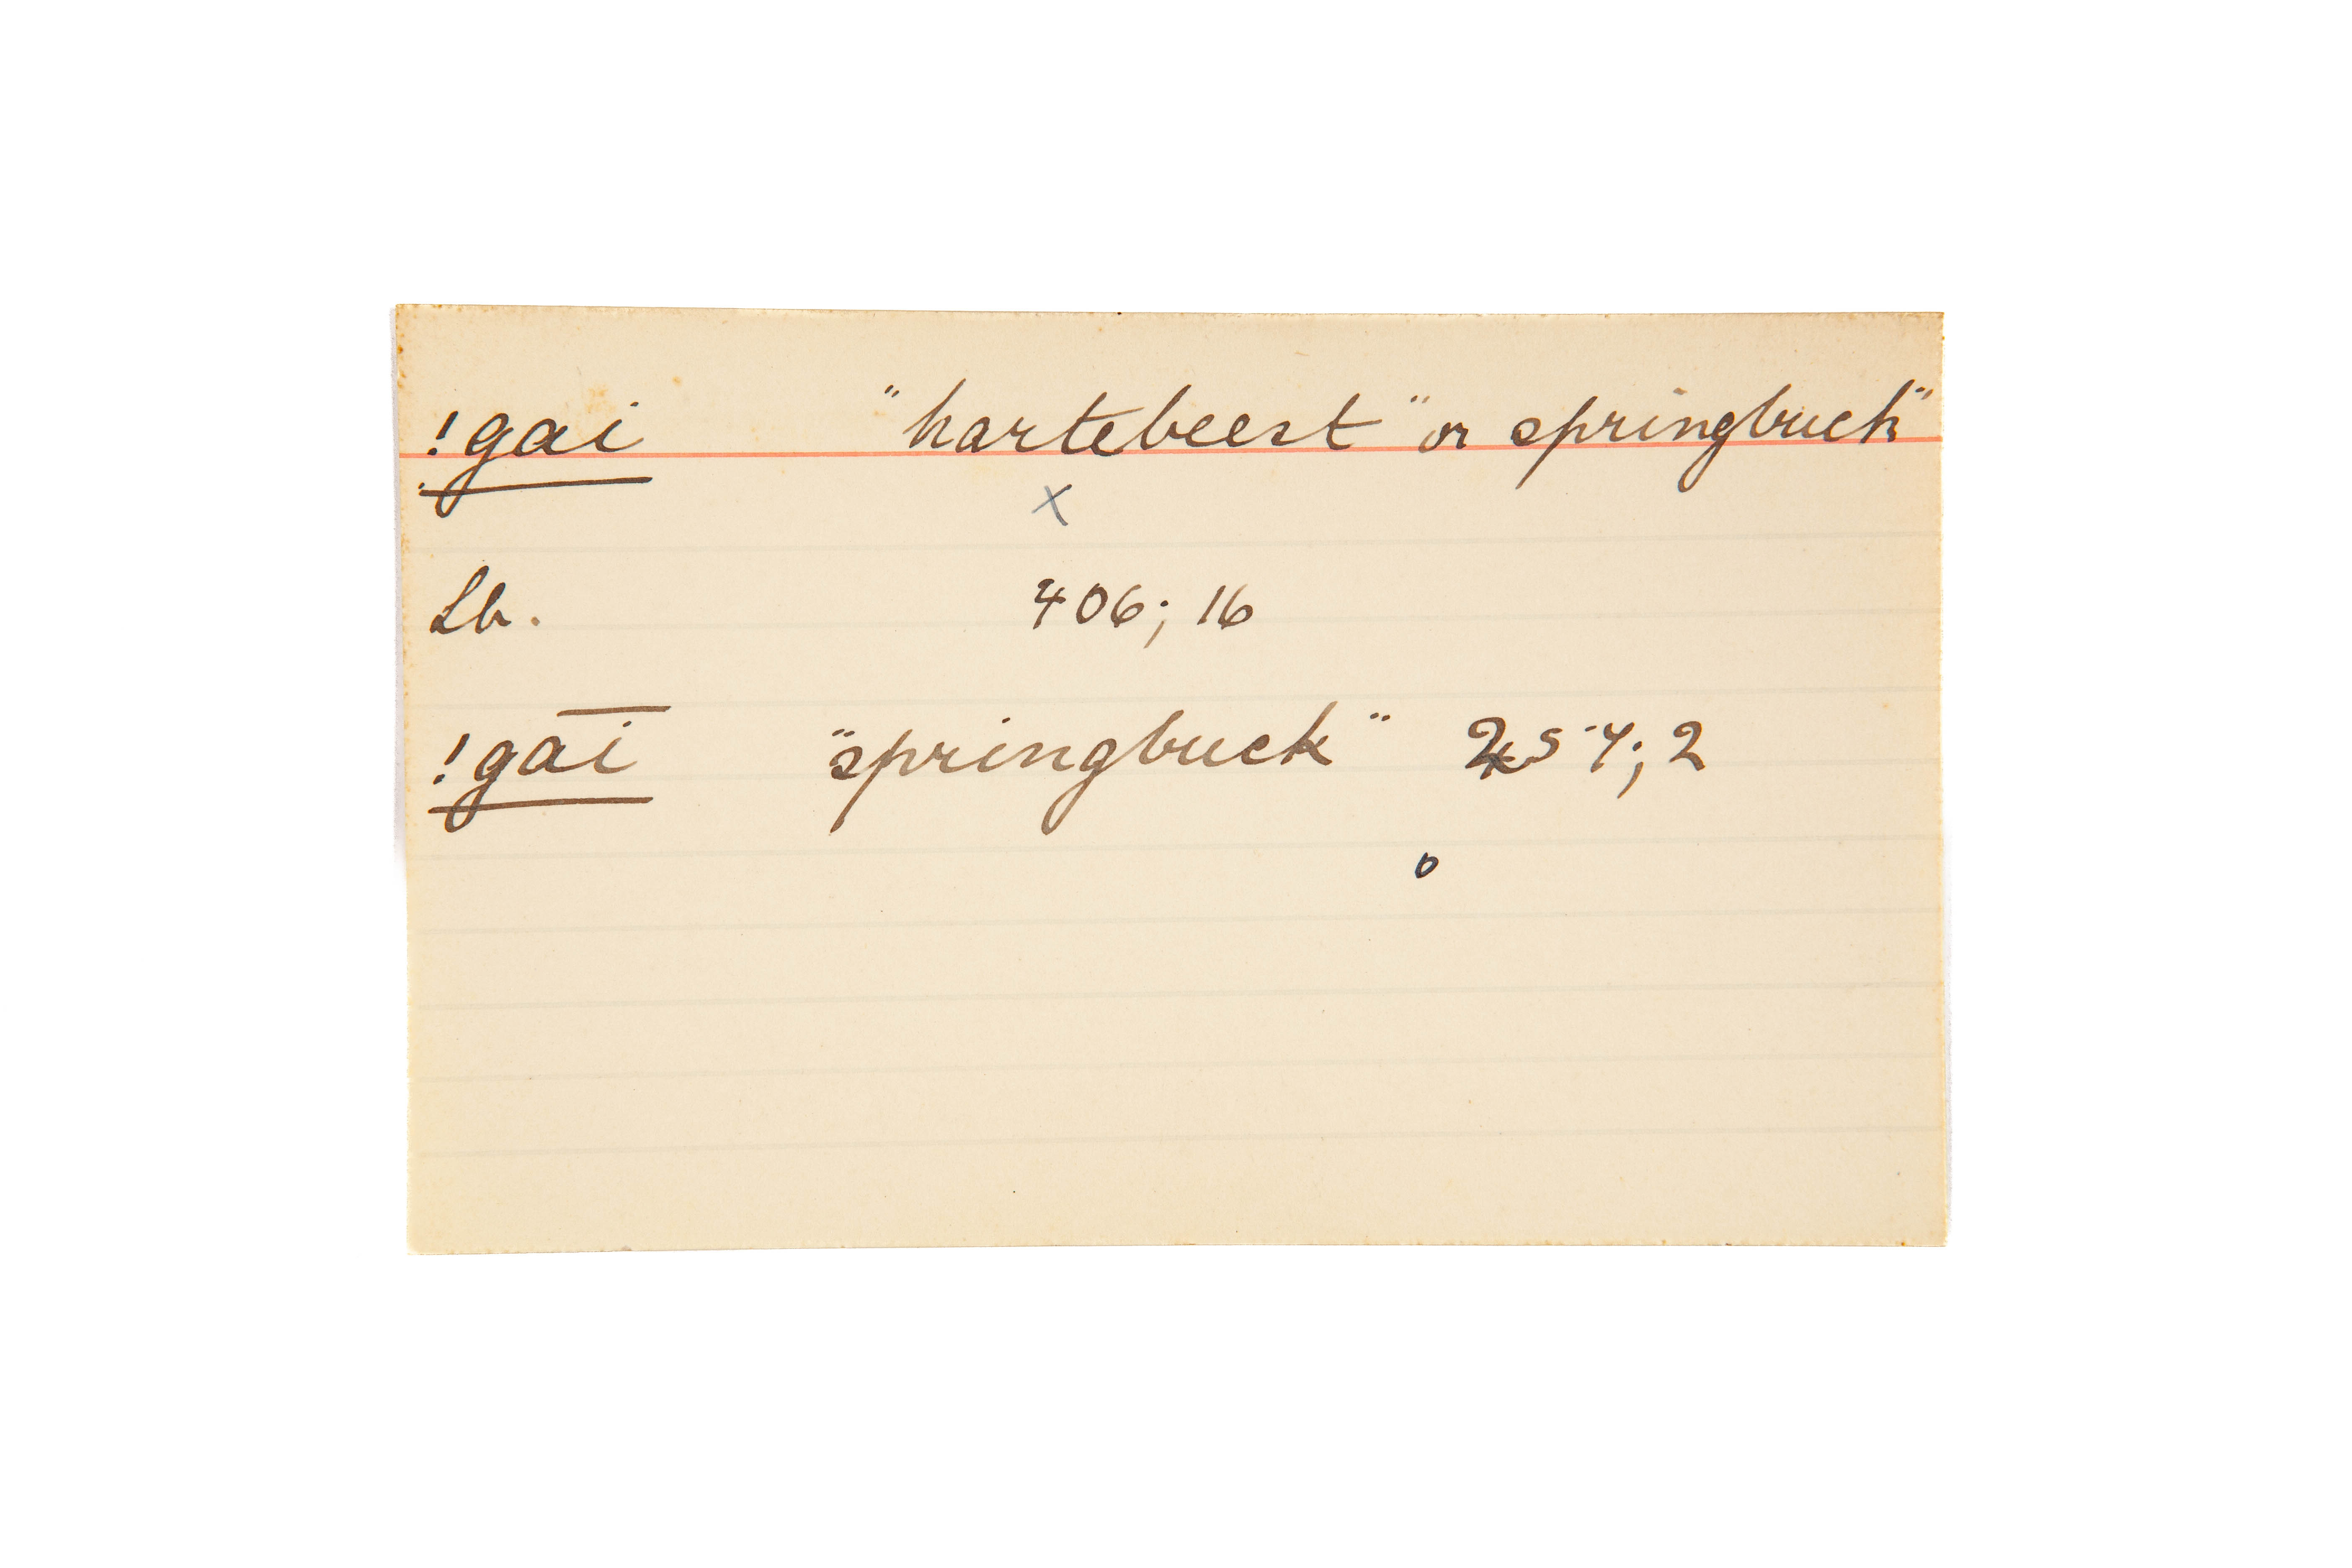 !gai "hartebeest" or springbuck"
x
Lb. 406; 16
!ga͞i "springbuck" 257; 2
o